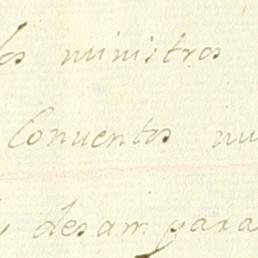 los ministros
Conuentos
desampara